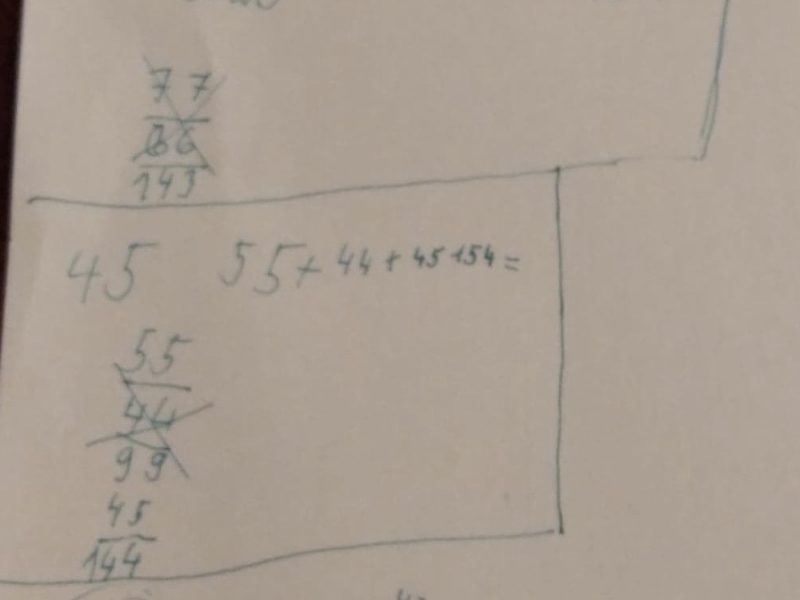 77
66
143
45 55+44+45+54=
55
44
99
45
144